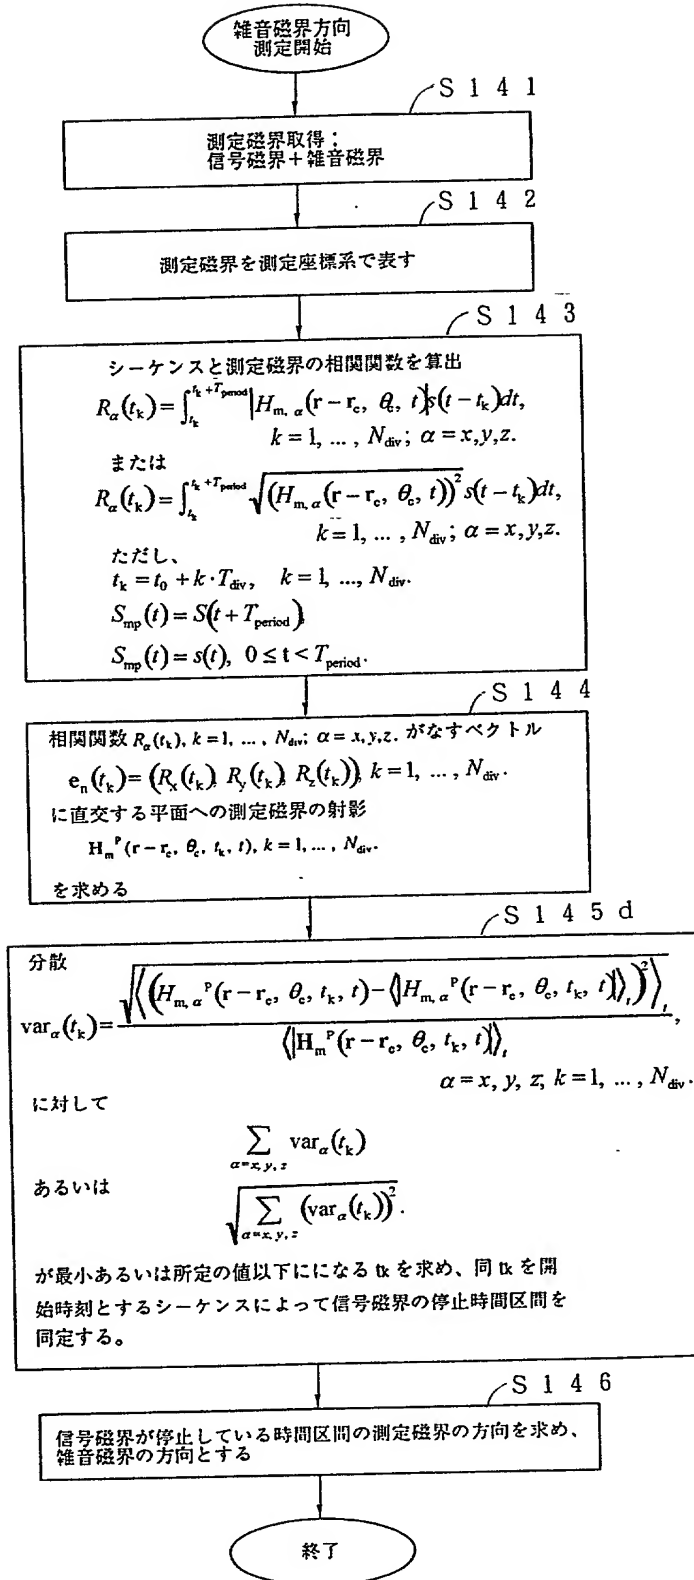 雑音磁界方向
測定開始
S141
測定磁界取得:
信号磁界+雑音磁界
S142
測定磁界を測定座標系で表す
S143
シーケンスと測定磁界の相関関数を算出
R_α(t_k)=∫_{t_k}^{t_k+T_period}|H_{m,α}(r−r_c, θ_c, t)|s(t−t_k)dt,
k=1, ..., N_div; α=x,y,z.
または
R_α(t_k)=∫_{t_k}^{t_k+T_period}√(H_{m,α}(r−r_c, θ_c, t))^2 s(t−t_k)dt,
k=1, ..., N_div; α=x,y,z.
ただし、
t_k=t_0+k·T_div, k=1, ..., N_div.
S_mp(t)=S(t+T_period),
S_mp(t)=s(t), 0≤t<T_period.
S144
相関関数R_α(t_k), k=1, ..., N_div; α=x,y,z. がなすベクトル
e_n(t_k)=(R_x(t_k), R_y(t_k), R_z(t_k)), k=1, ..., N_div.
に直交する平面への測定磁界の射影
H_m^P(r−r_c, θ_c, t_k, t), k=1, ..., N_div.
を求める
S145d
分散
var_α(t_k)=√⟨(H_{m,α}^P(r−r_c, θ_c, t_k, t)−⟨|H_{m,α}^P(r−r_c, θ_c, t_k, t)|⟩_t)^2⟩_t/⟨|H_m^P(r−r_c, θ_c, t_k, t)|⟩_t,
α=x, y, z; k=1, ..., N_div.
に対して
∑_{α=x,y,z} var_α(t_k)
あるいは
√∑_{α=x,y,z}(var_α(t_k))^2.
が最小あるいは所定の値以下にになる tk を求め、同 tk を開
始時刻とするシーケンスによって信号磁界の停止時間区間を
同定する。
S146
信号磁界が停止している時間区間の測定磁界の方向を求め、
雑音磁界の方向とする
終了